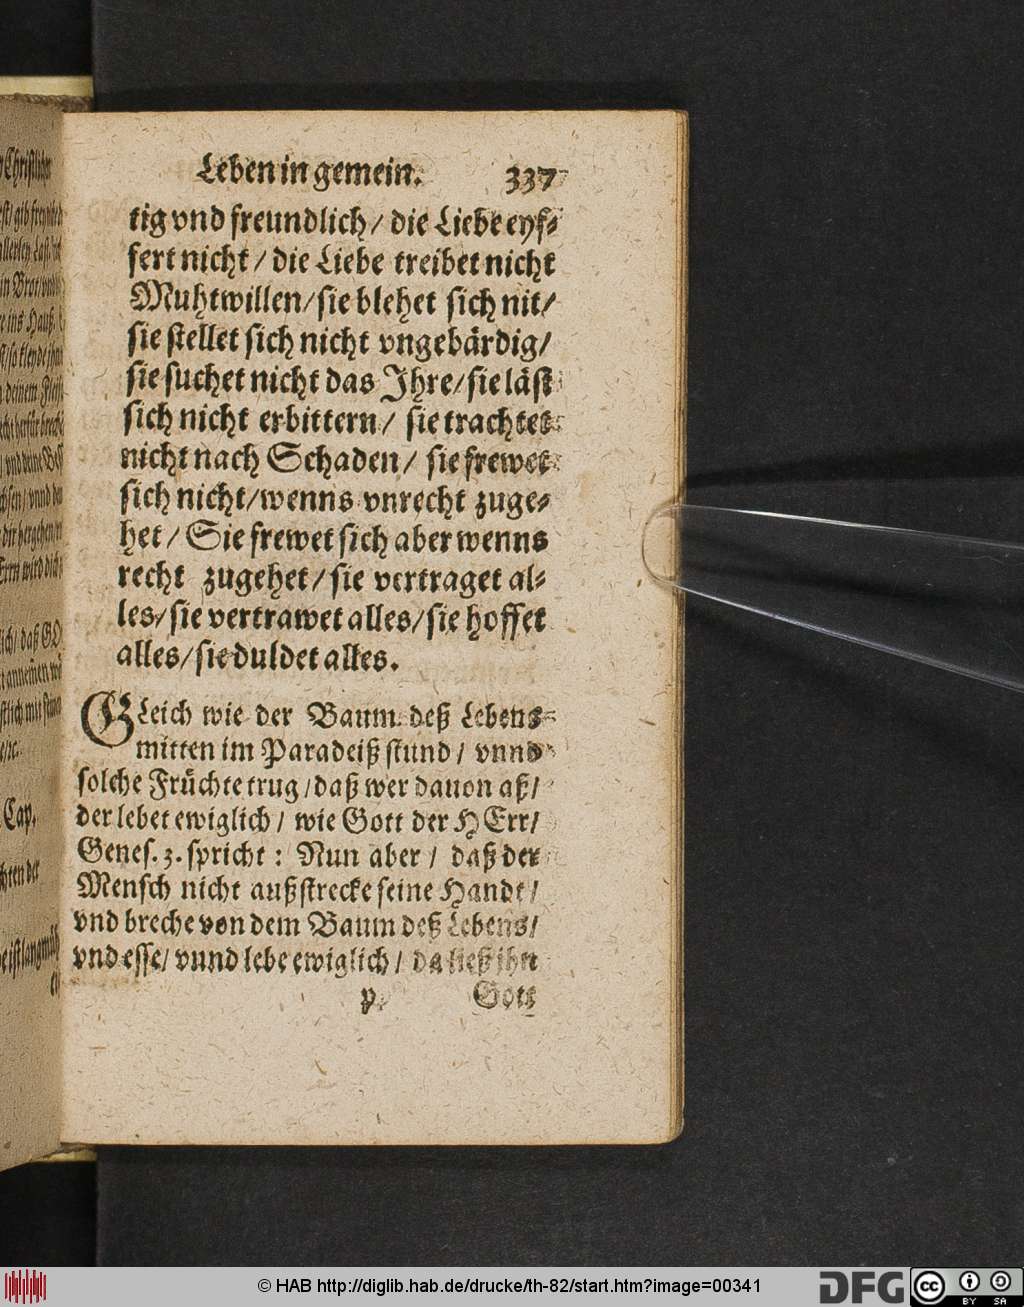 Leben in gemein. 337
tig vnd freundlich / die Liebe eyf-
fert nicht / die Liebe treibet nicht
Muhtwillen / sie blehet sich nit /
sie stellet sich nicht vngebärdig /
sie suchet nicht das Ihre / sie läst
sich nicht erbittern / sie trachtet
nicht nach Schaden / sie frewet
sich nicht / wenns vnrecht zuge-
het / Sie frewet sich aber wenns
recht zugehet / sie vertraget al-
les / sie vertrawet alles / sie hoffet
alles / sie duldet alles.
GLeich wie der Baum deß Lebens
mitten im Paradeiß stund / vnnd
solche Früchte trug / daß wer dauon aß /
der lebet ewiglich / wie Gott der HErr /
Genes. 3. spricht : Nun aber / daß der
Mensch nicht außstrecke seine Handt /
vnd breche von dem Baum deß Lebens /
vnd esse / vnnd lebe ewiglich / da ließ ihn
p Gott
© HAB http://diglib.hab.de/drucke/th-82/start.htm?image=00341
DFG
cc BY SA